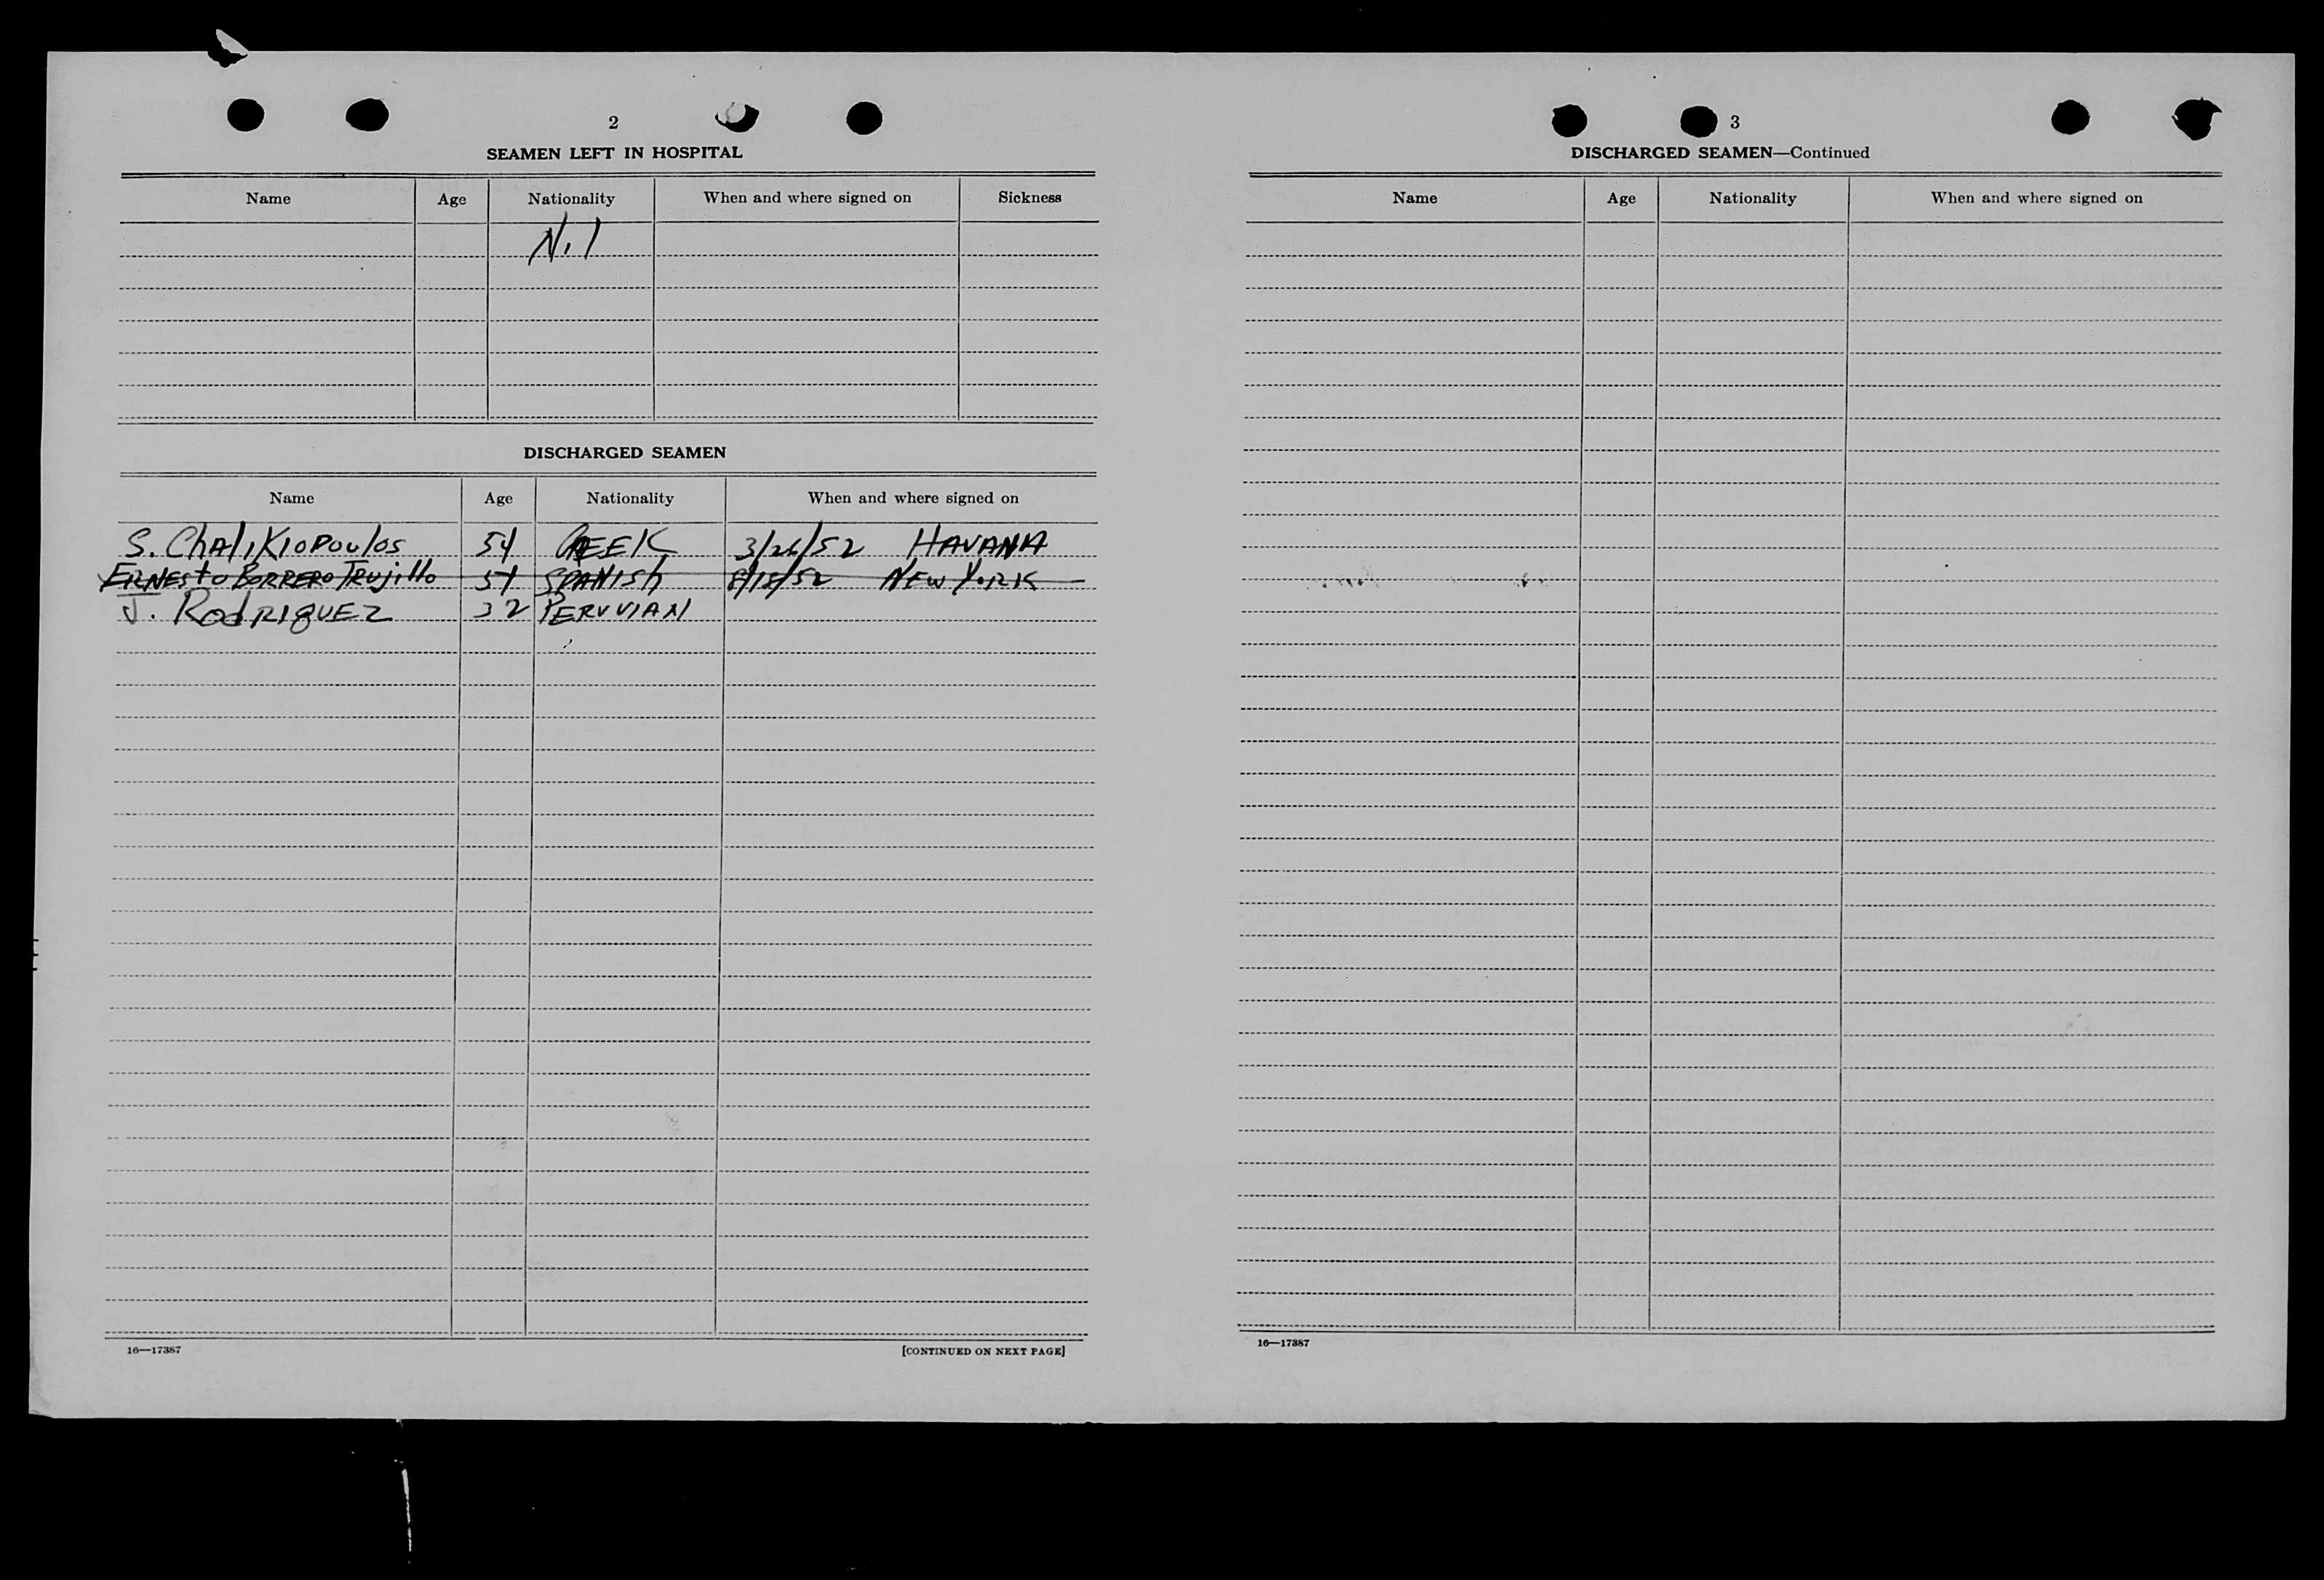 2
SEAMEN LEFT IN HOSPITAL
Name Age Nationality When and where signed on Sickness
Nil
DISCHARGED SEAMEN
Name Age Nationality When and where signed on
S. ChAliKIOPOulos 54 GREEK 3/26/52 HAVANA
ERNESto BORRERO TRujillo 51 SPANISh 8/15/52 NEW YORK
J. RodRIgUEZ 32 PERUVIAN
16—17387 [CONTINUED ON NEXT PAGE]
3
DISCHARGED SEAMEN—Continued
Name Age Nationality When and where signed on
16—17387